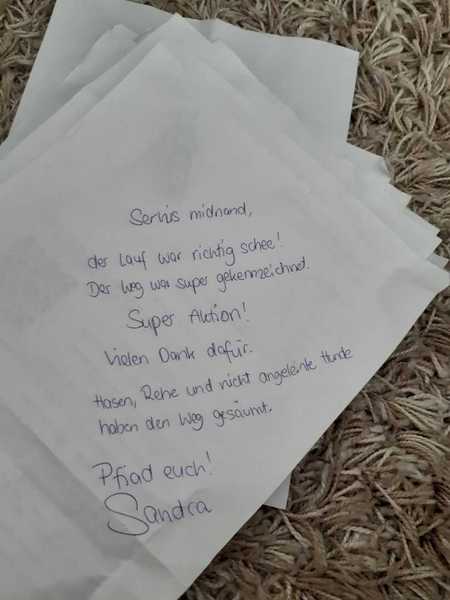 Servus midnand,
der Lauf war richtig schee!
Der Weg war super gekennzeichnet.
Super Aktion!
Vielen Dank dafür.
Hasen, Rehe und nicht angeleinte Hunde
haben den Weg gesäumt.
Pfiad euch!
Sandra